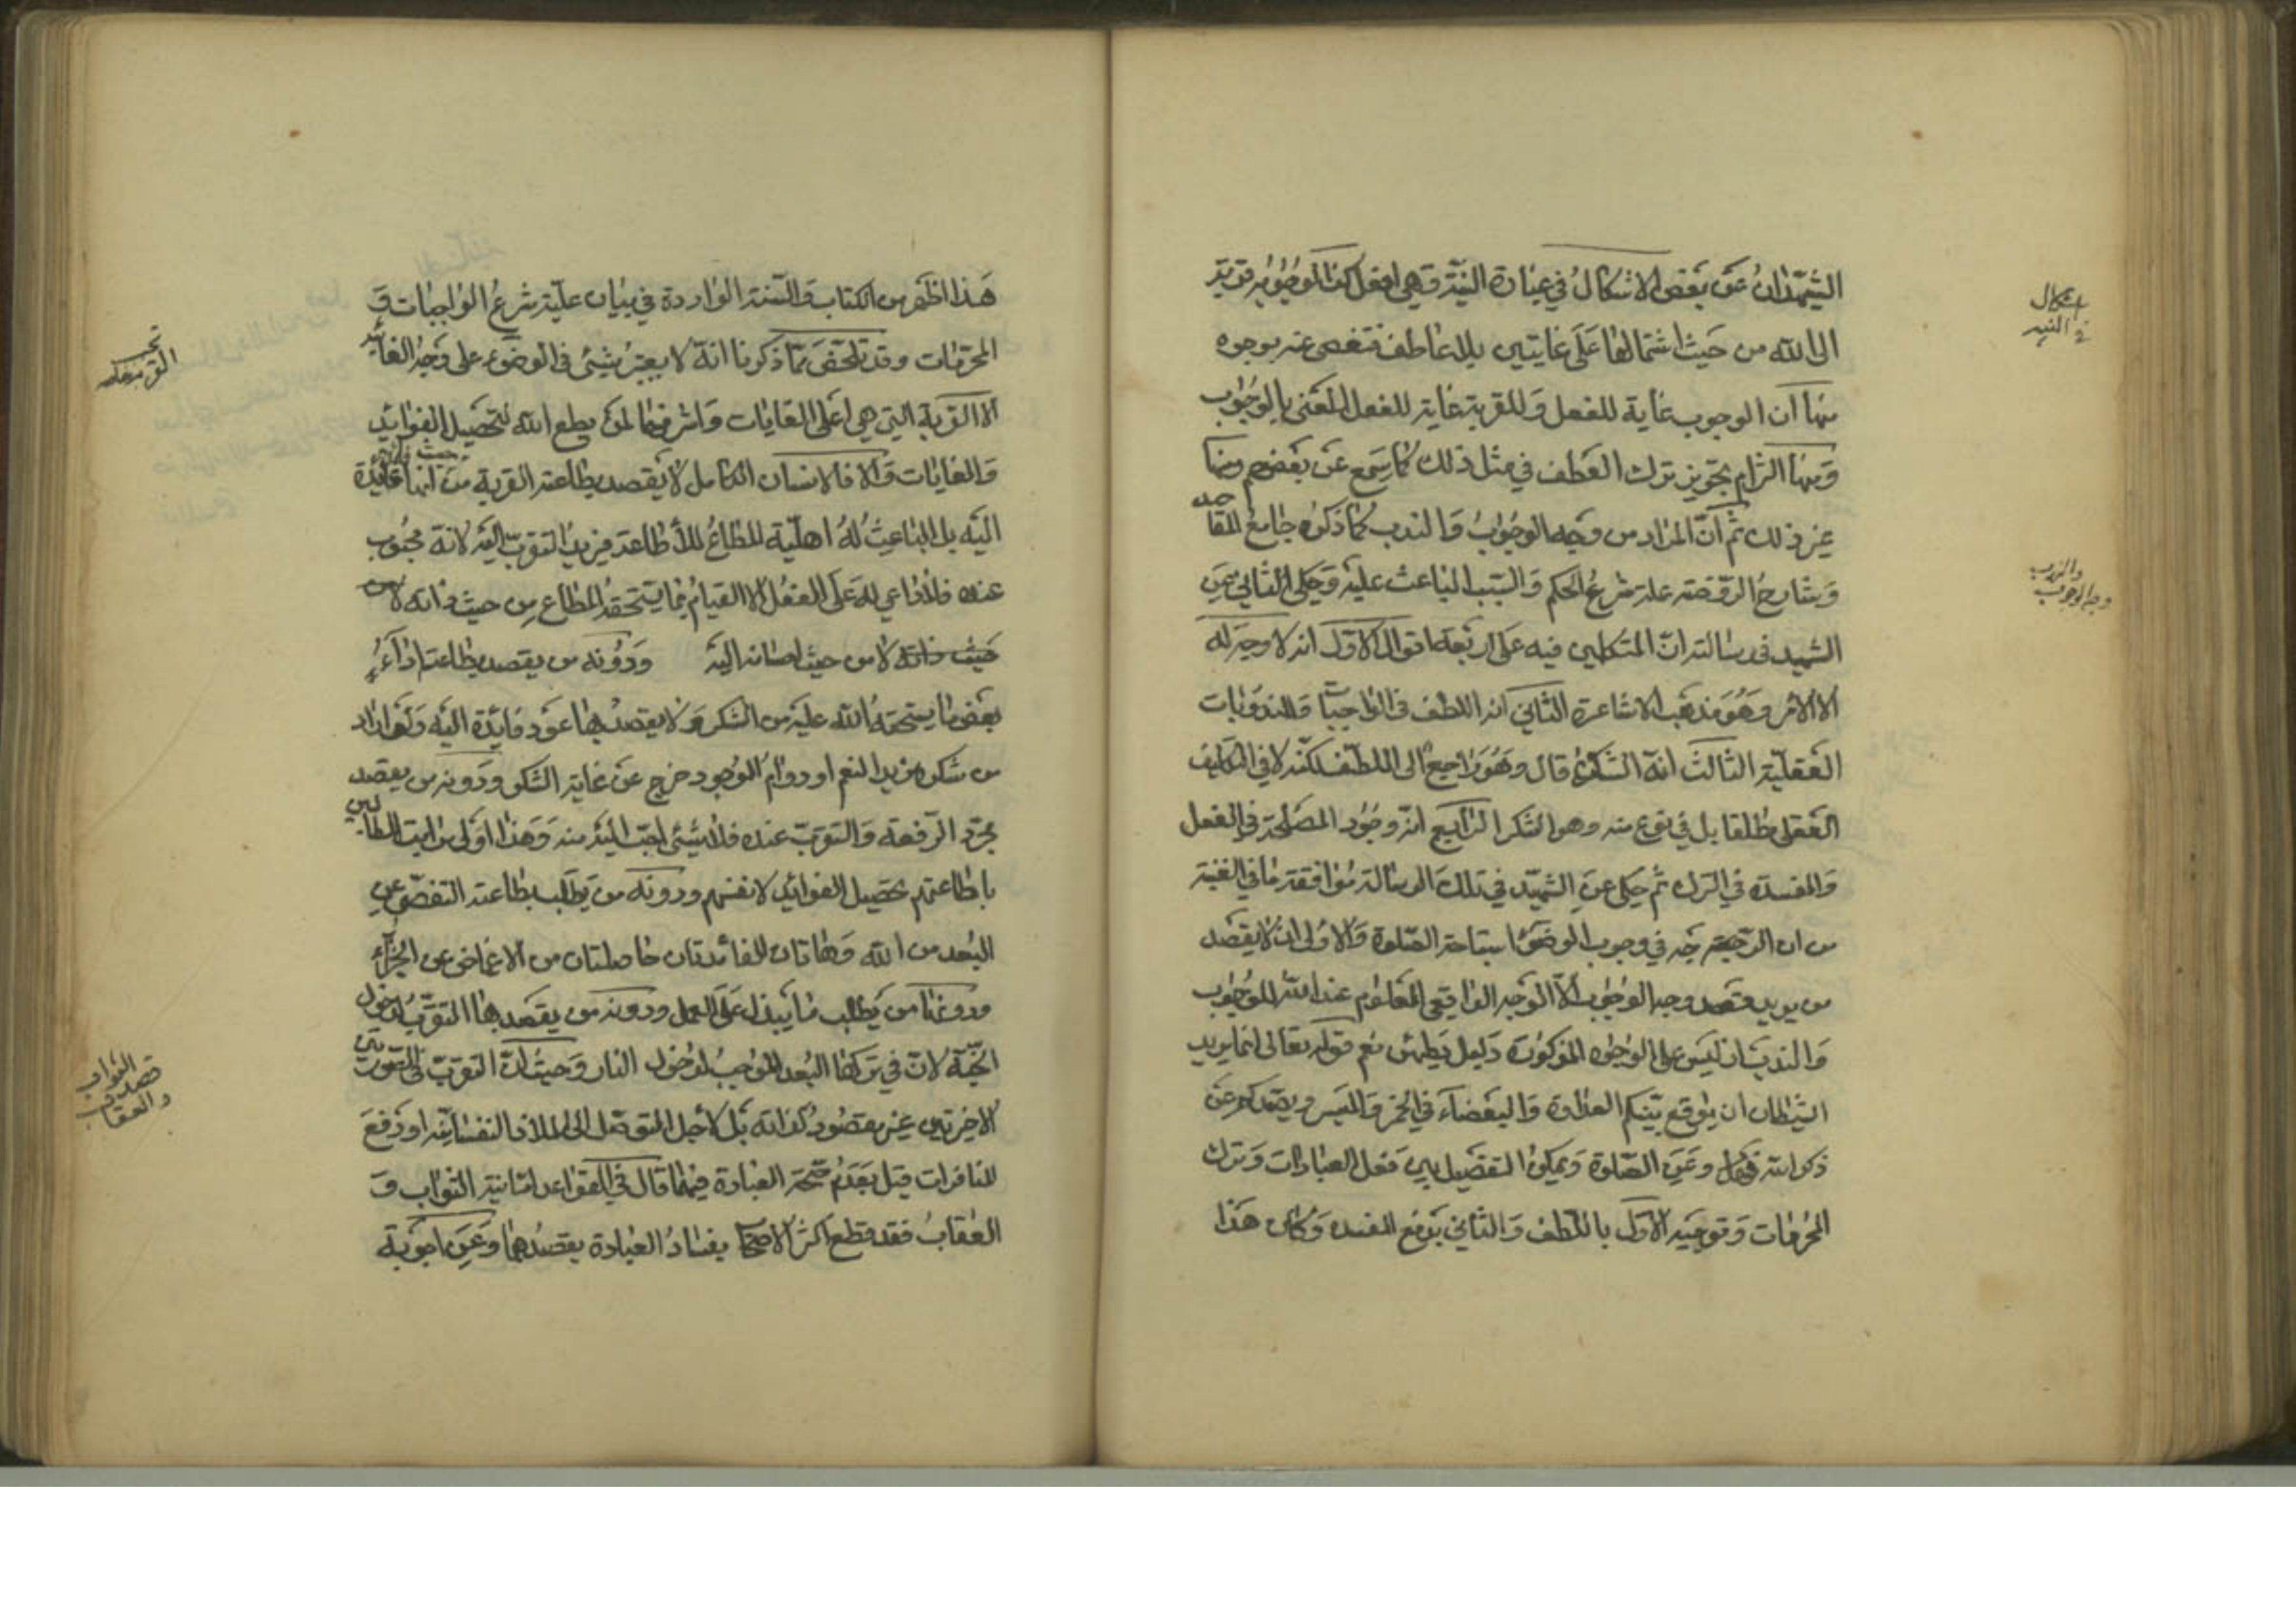 الشهيدان عن بعض الاشكال في عبارة النية وهي افعل كذا لوجوبه قربة
الى الله من حيث اشتمالها على غايتين بلا عاطف فتفصى عنه بوجوه
منها ان الوجوب غاية للفعل والقربة غاية للفعل المغيى بالوجوب
ومنها التزام تجويز ترك العطف في مثل ذلك كما سمع عن بعضهم ومنها
غير ذلك ثم ان المراد من وجه الوجوب والندب كما ذكره جامع المقاصد
وشارح الروضة علة شرع الحكم والسبب الباعث عليه وحكى الثاني عن
الشهيد في رسالته ان المتكلمين فيه على اربعة اقوال الاول انه لا وجه له
الا الامر وهو مذهب الاشاعرة الثاني انه اللطف في الواجبات والمندوبات
العقلية الثالث انه الشكر قال وهو راجع الى اللطف لكنه لا في التكليف
العقلي مطلقا بل في نوع منه وهو الشكر الرابع انه وجود المصلحة في الفعل
والمفسدة في الترك ثم حكى عن الشهيد في تلك الرسالة موافقة ما في الغنية
من ان الوجه في وجوب الوضوء استباحة الصلوة والاولى ان لا يقصد
من يريد قصد وجه الوجوب الا الوجه الواقعي المعلوم عند الله للوجوب
والندب اذ ليس على الوجوه المذكورة دليل يطمئن نعم قوله تعالى انما يريد
الشيطان ان يوقع بينكم العداوة والبغضاء في الخمر والميسر ويصدكم عن
ذكر الله وعن الصلوة ويمكن التفصيل بين فعل العبادات وترك
المحرمات وتوجيه الاول باللطف والثاني بدفع المفسدة وكان هذا
اشكال
في النية
والندب
وجه الوجوب
هذا اظهر من الكتاب والسنة الواردة في بيان علية شرع الواجبات و
المحرمات وقد تلحقق مما ذكرنا انه لا يعتبر شيئ في الوضوء على وجه الغاية
الا القربة التي هي اعلى الغايات واشرفها لمن يطع الله لتحصيل الفوائد
والغايات والا فالانسان الكامل لا يقصد بطاعته القربة من حيث انها فائدة
اليه بل الباعث له اهلية المطاع للاطاعة فيريد التقرب اليه لانه محبوب
عنده فلا داعي له على الفعل الا القيام بما يستحقه المطاع من حيث ذاته لا من
حيث ذاته لا من حيث احسانه اليه ودونه من يقصد بطاعته اداء
بعض ما يستحقه الله عليه من الشكر ولا يقصد بها عود فائدة اليه ولو اراد
من شكره مزيد النعم او دوام الوجود خرج عن غاية الشكر ودونه من يقصد
مجرد الرفعة والتقرب عنده فلا شيئ احب اليه منه وهذا اولى مراتب الطالبين
باطاعتهم تحصيل الفوائد لانفسهم ودونه من يطلب بطاعته التفصي عن
البعد من الله وهاتان الفائدتان حاصلتان من الاغماض عن الجزاء
ودونها من يطلب ما يبذل على العمل ودونه من يقصد بها التقرب لدخول
الجنة لان في تركها البعد الموجب لدخول النار وحيث ان التقرب في الصورتين
الاخرتين غير مقصود لذاته بل لاجل التوصل الى الملاذ النفسانية او دفع
المنافرات قيل بعدم صحة العبادة فيهما قال في القواعد اما نية الثواب و
العقاب فقد قطع اكثر الاصحاب بفساد العبادة بقصدهما وعن اجوبة
قصد الثواب
والعقاب